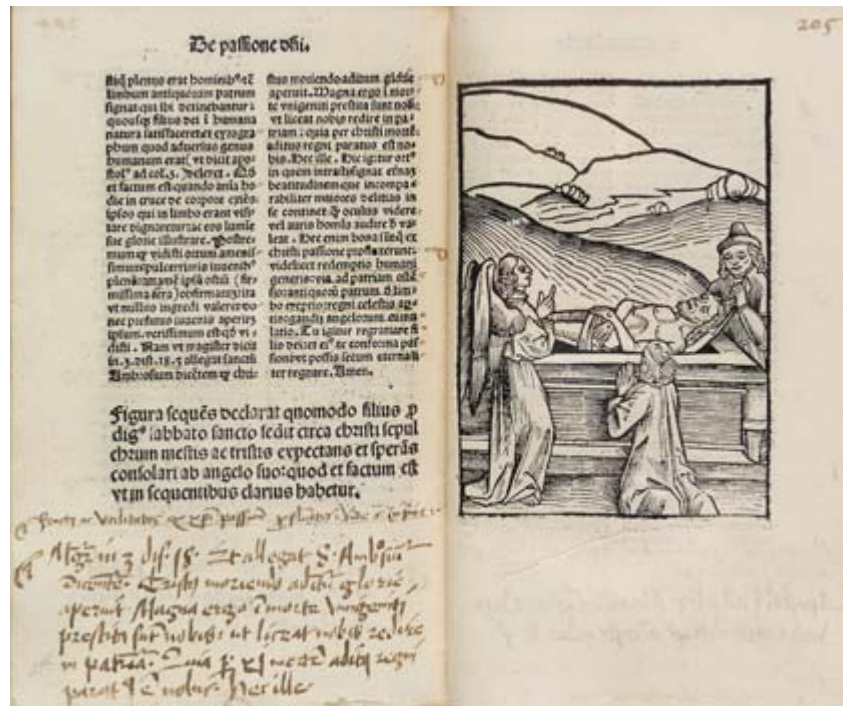 De passione dñi.
205
stiq̃ plenus erat hominibꝰ
limbum antiquorum patrum
signat qui ibi detinebantur:
quousq; filius dei ĩ humana
natura satisfaceret
phum quod aduersus genus
humanum erat( vt dicit apo-
stolꝰ ad col.3.
et factum est quando aĩa ho-
die in cruce de corpore
ipsos qui in limbo erant visi-
tare dignaretur ac eos lumĩe
sue glorie illustrare. Postre-
mum q̃ vidisti ortum amenis-
simum pulcerrimis
plenũ ipsũ ostiũ (fir-
missima sera) obfirmatũ ita
vt nullus ingredi valeret do-
nec
ipsum. verissimum est qd̃ vi-
disti. Nam vt magister dicit
in.3.dist.18. allegat sanctũ
Ambrosium dicẽtem q̃ chri-
stus moriendo aditum glorie
aperuit. Magna ergo ĩ mor-
te vnigeniti prestita sunt nobi
vt liceat nobis redire in pa-
triam: quia per christi mortẽ
aditus regni paratus est no-
bis. Hec ille. Hic igitur ortꝰ
in quem intrasti signat eternã
beatitudinem que incompa-
rabiliter maiores delitias in
se continet q̃ oculus videre
vel auris homĩs audire
leat. Hec enim bona
christi passione
videlicet redemptio humani
generis: via ad patriam
antiquorũ patrum. d̃ lim-
bo ereptio: regni celestis
angelorum
latio. Tu igitur regratiare fi-
lio dei et eiꝰ te conforma pas-
sioni vt possis secum eternali-
ter regnare. Amen.
Figura sequẽs declarat quomodo filius ꝓ
digꝰ sabbato sancto sedit circa christi sepul
chrum mestus ac tristis expectans et sperãs
consolari ab angelo suo: quod et factum est
vt in sequentibus clarius habetur.
Mgr̃ in 3 dis. 18. Et allegat S. Ambrosiũ
dicentẽ. Cristꝰ moriendo aditũ glorie
aperuit Magna ergo ĩ morte vnigeniti
prestita sũt nobis. ut liceat nobis redire
in patriã. Quia ꝑ mortẽ aditꝰ regni
paratꝰ ẽ nobis. Hec ille